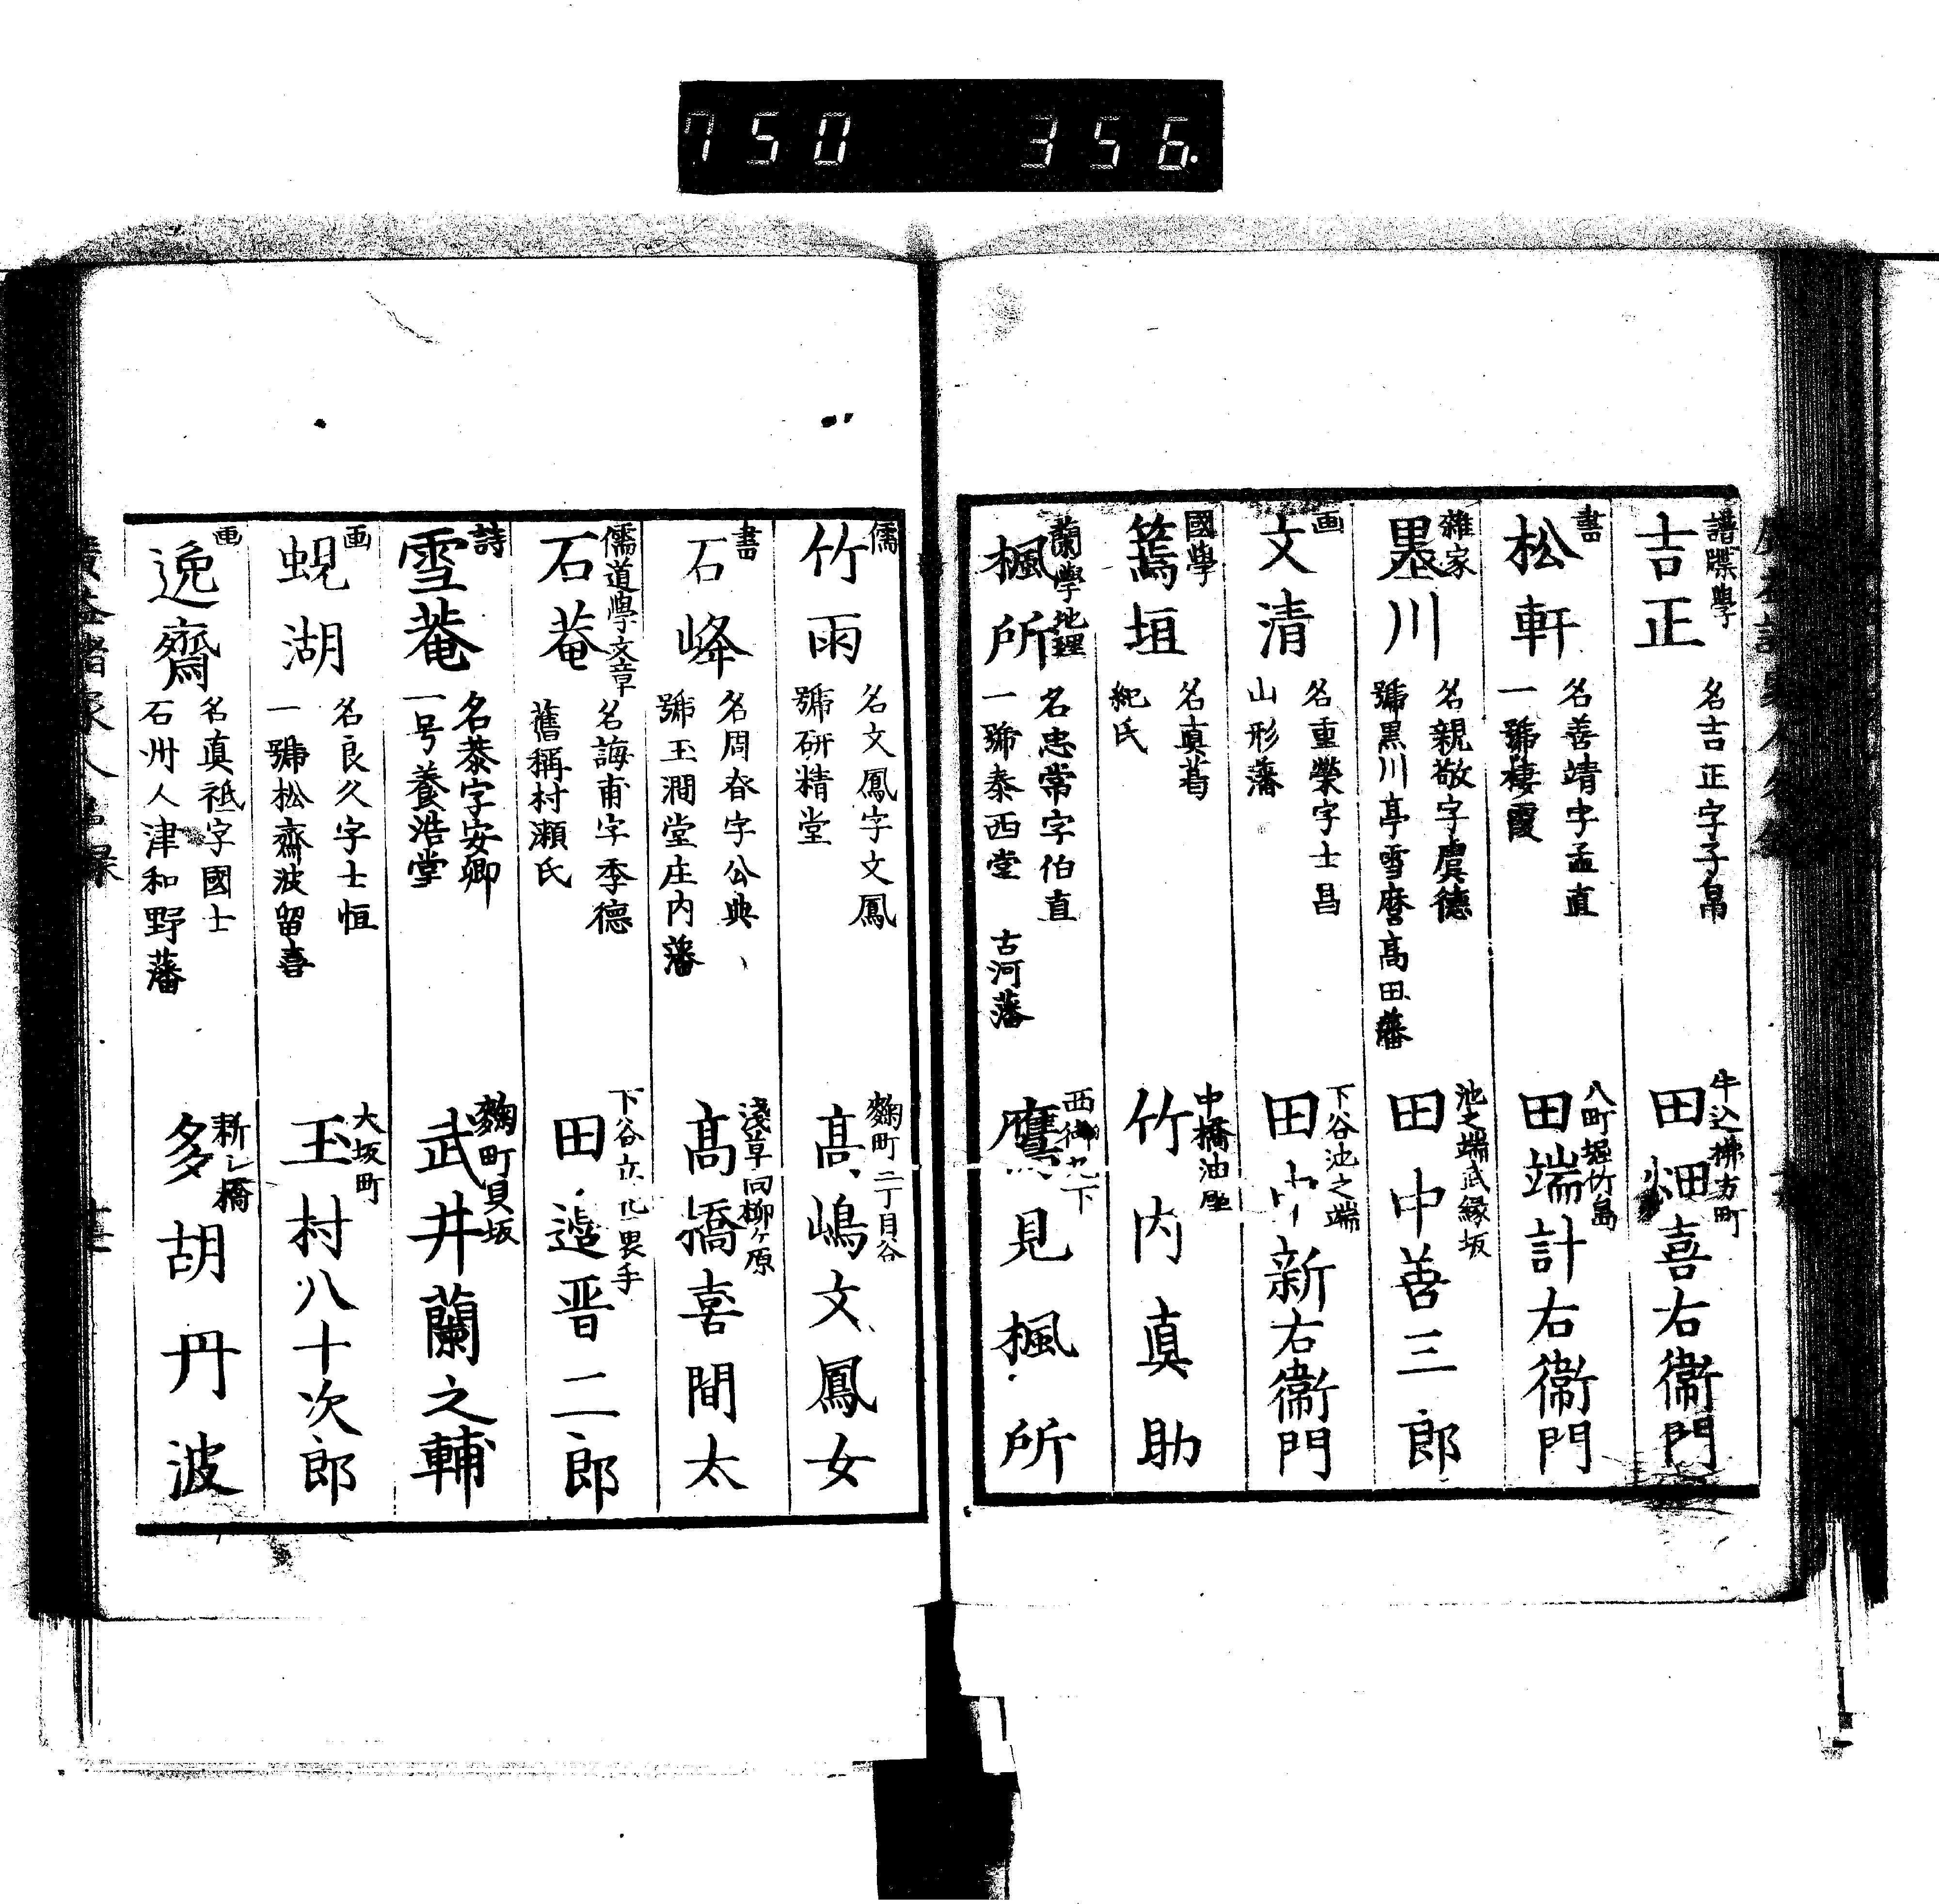 750 356.
譜牒學
吉正
名吉正字子帛
牛込拂方町
田畑喜右衞門
書
松軒
名善靖字孟直
一號棲霞
八町堀竹島
田端計右衞門
雜家
墨川
名親敬字虞德
號黒川亭雪麿高田藩
池之端武縁坂
田中善三郎
画
文清
名重榮字士昌
山形藩
下谷池之端
田中新右衞門
國學
篶垣
名真葛
紀氏
中橋油座
竹内真助
蘭學地理
楓所
名忠常字伯直
一號泰西堂 古河藩
西御丸下
鷹見楓所
儒
竹雨
名文鳳字文鳳
號研精堂
麹町二丁目谷
高嶋文鳳女
書
石峰
名周春字公典
號玉澗堂庄内藩
淺草向柳ケ原
高橋喜間太
儒道學文章
石菴
名誨甫字季德
舊稱村瀬氏
下谷立
田邊晋二郎
詩
雪菴
名恭字安卿
一号養浩堂
麹町貝坂
武井蘭之輔
画
蜆湖
名良久字士恒
一號松齋波留喜
大坂町
玉村八十次郎
画
逸齋
名真祗字國士
石州人津和野藩
新シ橋
多胡丹波